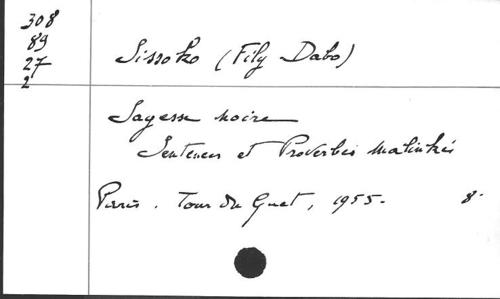 308
89
27
2
Sissoko (Fily Dabo)
Sagesse noire
Sentences et Proverbes malinkés
Paris. Tour du Guet, 1955. 8°